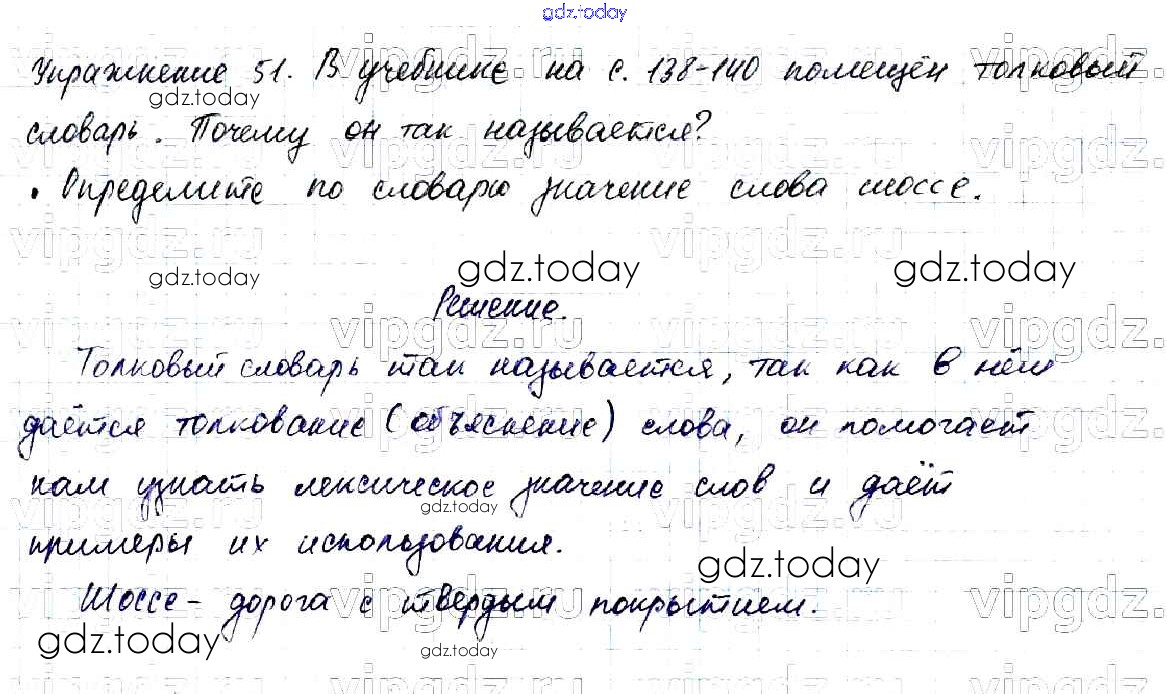 gdz.today
Упражнение 51. В учебнике на с. 138-140 помещён толковый
gdz.today
словарь. Почему он так называется?
• Определите по словарю значение слова шоссе.
gdz.today gdz.today gdz.today
Решение.
Толковый словарь так называется, так как в нём
даётся толкование (объяснение) слова, он помогает
нам узнать лексическое значение слов и даёт
gdz.today
примеры их использования.
gdz.today
Шоссе - дорога с твердым покрытием.
gdz.today gdz.today
vipgdz.ru